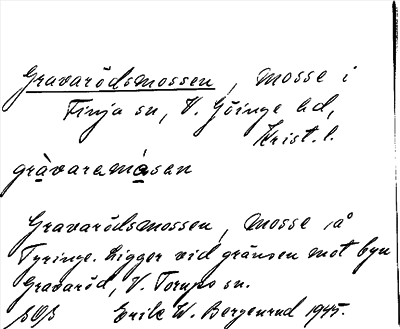 Gravarödsmossen, mosse i
Finja sn, V. Göinge hd,
Krist. l.
gràvaremåsen
Gravarödsmossen, mosse å
Tyringe. Ligger vid gränsen mot byn
Gravaröd, V. Torups sn.
Erik W. Bergenrud 1945.